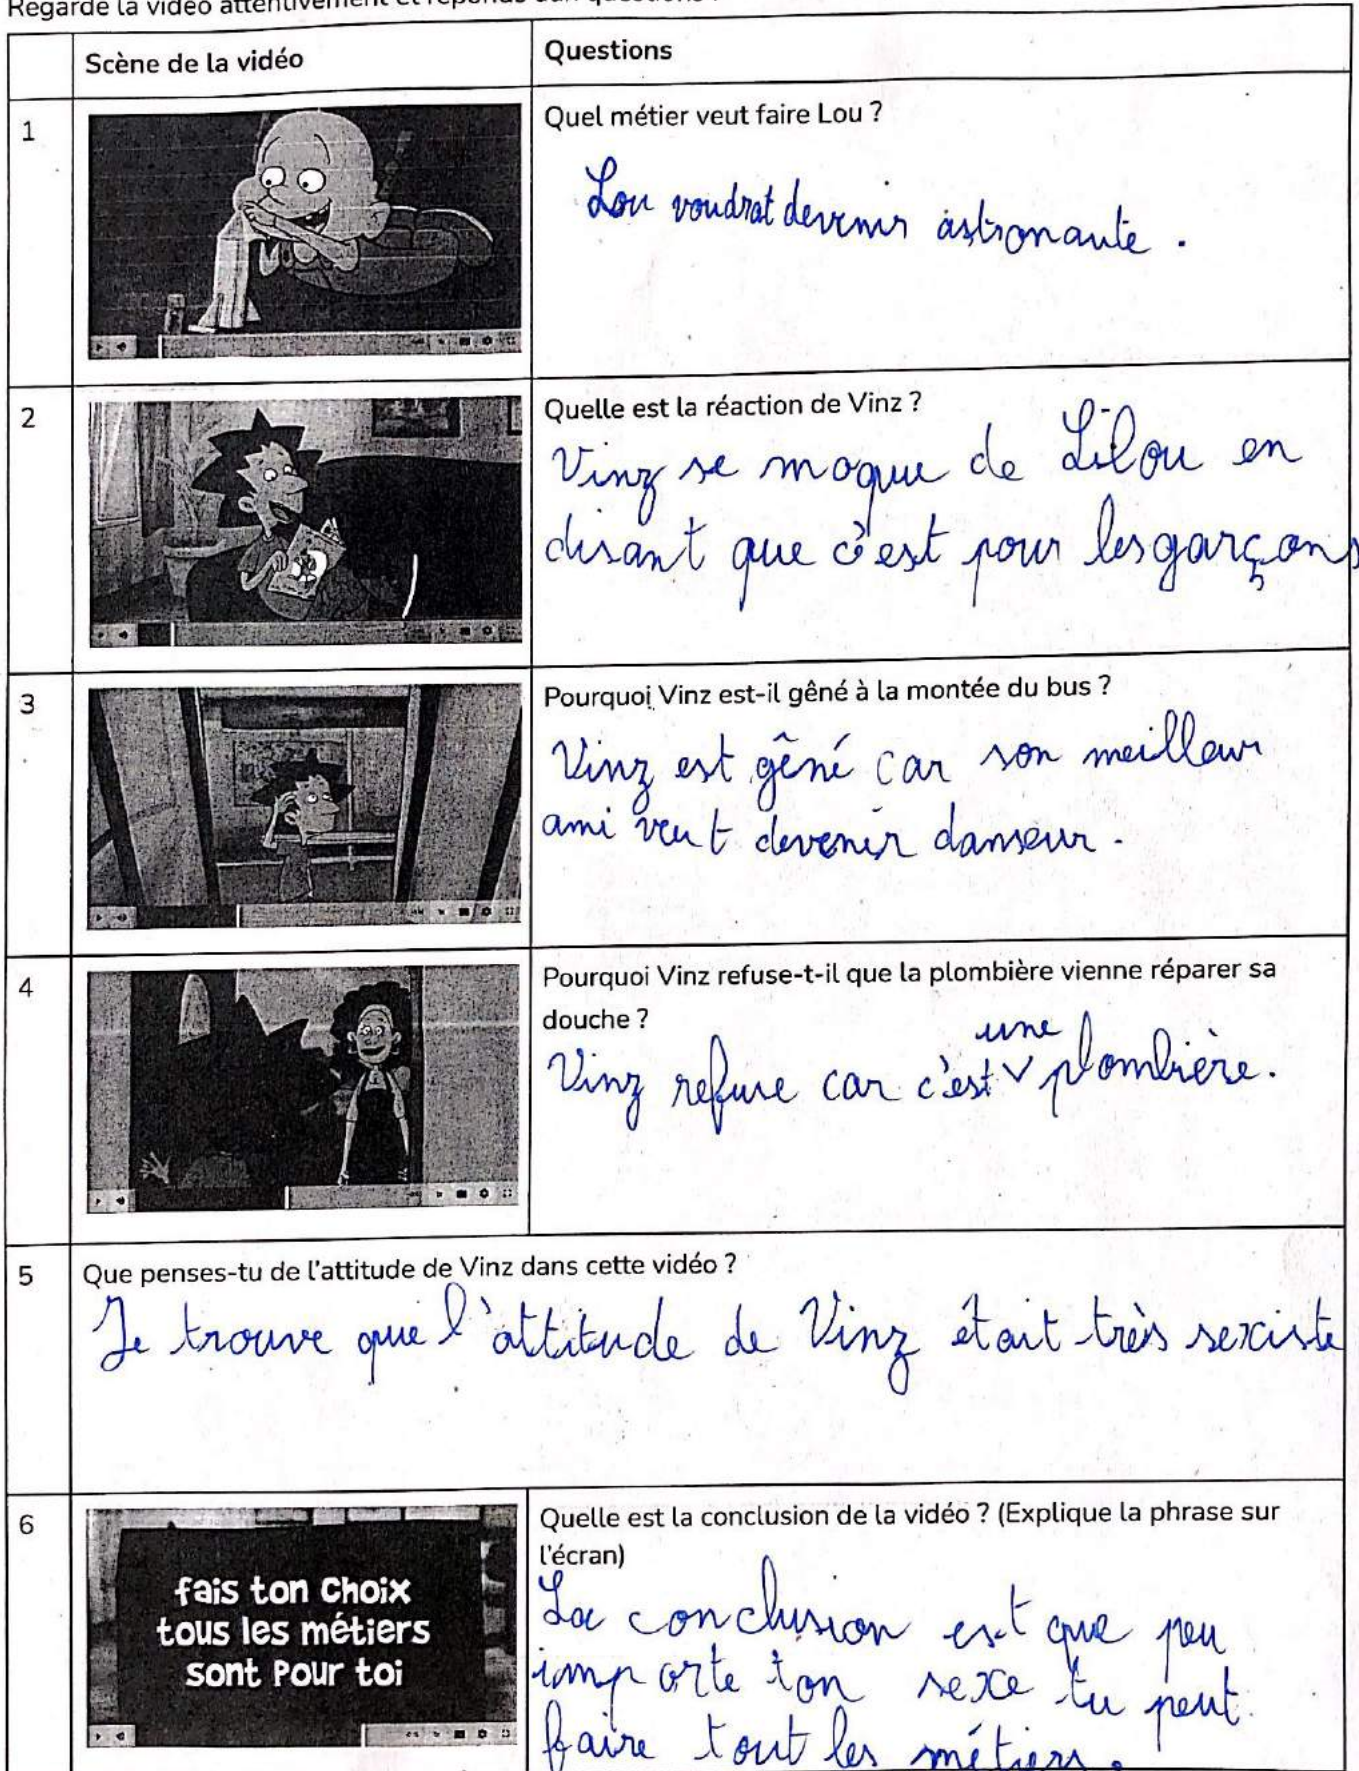 Regarde la vidéo attentivement et réponds aux questions
Scène de la vidéo
Questions
1
Quel métier veut faire Lou ?
Lou voudrat devenir astronaute .
2
Quelle est la réaction de Vinz ?
Vinz se moque de Lilou en
disant que c'est pour les garçons
3
Pourquoi Vinz est-il gêné à la montée du bus ?
Vinz est gêné car son meilleur
ami veut devenir danseur .
4
Pourquoi Vinz refuse-t-il que la plombière vienne réparer sa
douche ?
une
Vinz refuse car c'est v plombière.
5
Que penses-tu de l'attitude de Vinz dans cette vidéo ?
Je trouve que l'attitude de Vinz était très sexiste
6
fais ton choix
tous les métiers
sont pour toi
Quelle est la conclusion de la vidéo ? (Explique la phrase sur
l'écran)
La conclusion est que peu
importe ton sexe tu peut
faire tout les métiers.